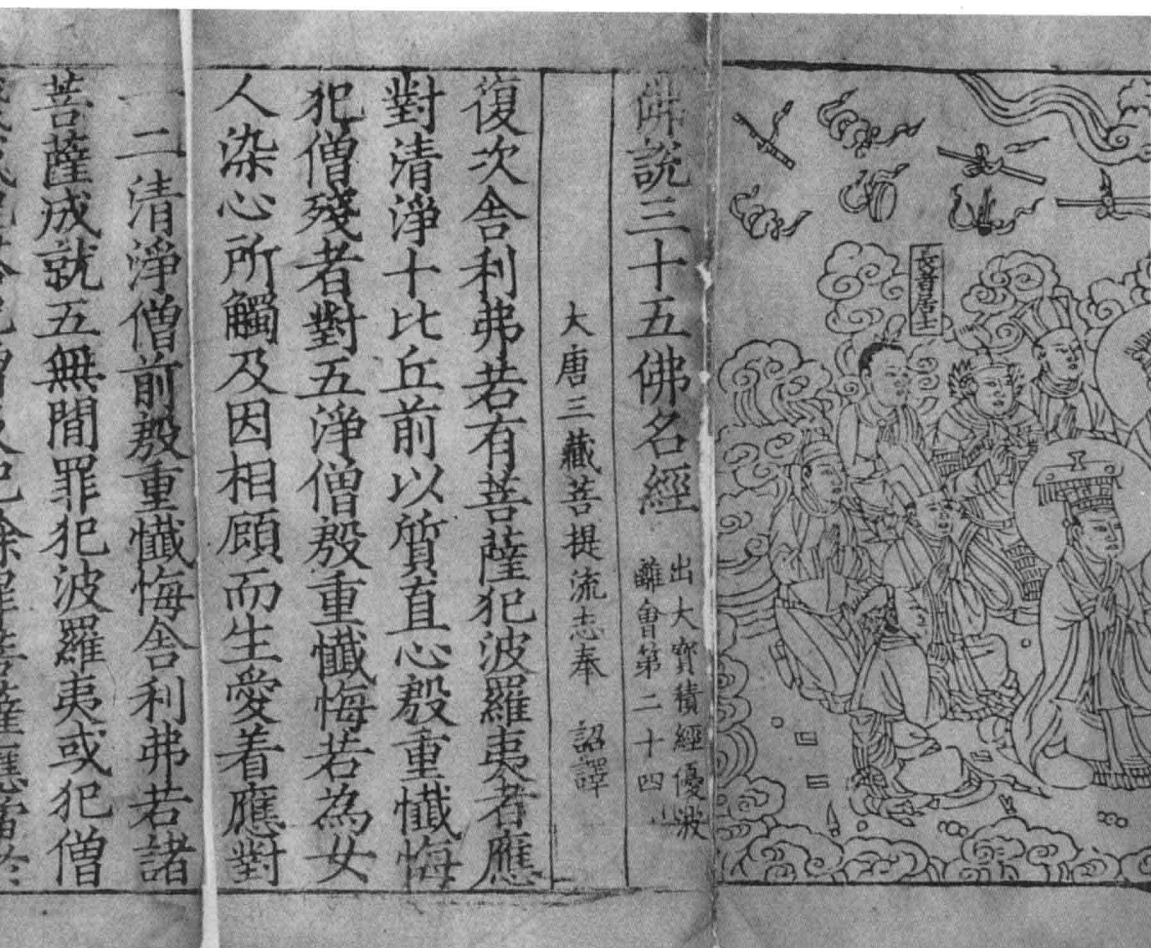 長者居士
佛說三十五佛名經
出大寶積經優波
離會第二十四
大唐三藏菩提流志奉 詔譯
復次舍利弗若有菩薩犯波羅夷者應
對清淨十比丘前以質直心殷重懺悔
犯僧殘者對五淨僧殷重懺悔若為女
人染心所觸及因相顧而生愛着應對
一二清淨僧前殷重懺悔舍利弗若諸
菩薩成就五無間罪犯波羅夷或犯僧
犯餘罪菩薩應當於